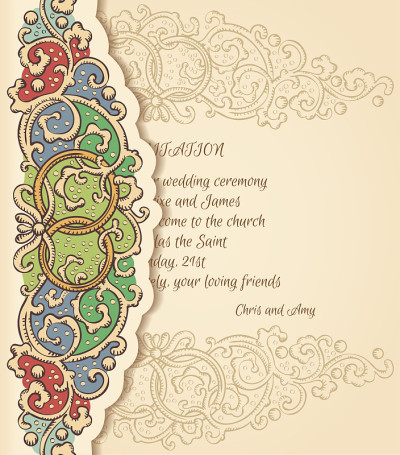 ITATION
wedding ceremony
and James
come to the church
las the Saint
day, 21st
ely, your loving friends
Chris and Amy